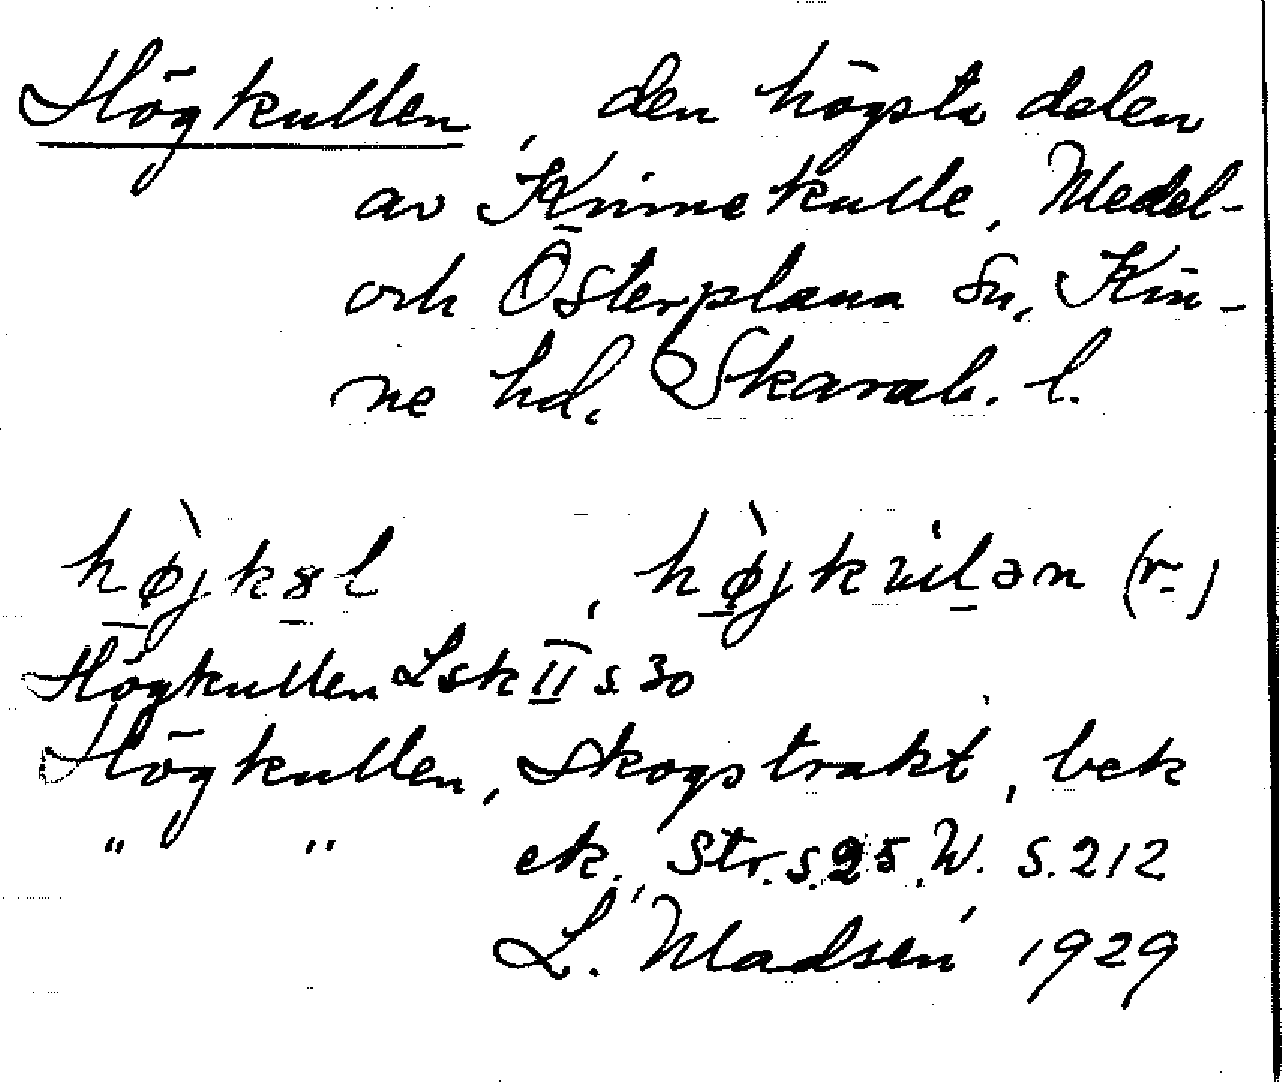 Högkullen, den högsta delen
av Kinnekulle, Medel-
och Österplana sn, Kin-
ne hd, Skarab. l.
hø̀jkɤl, hø̀jkɯlən (r.)
Högkullen Lsk II s 30
Högkullen, skogstrakt, bek
" " ek., Str. s. 25, W. S. 212
L. Madsén 1929